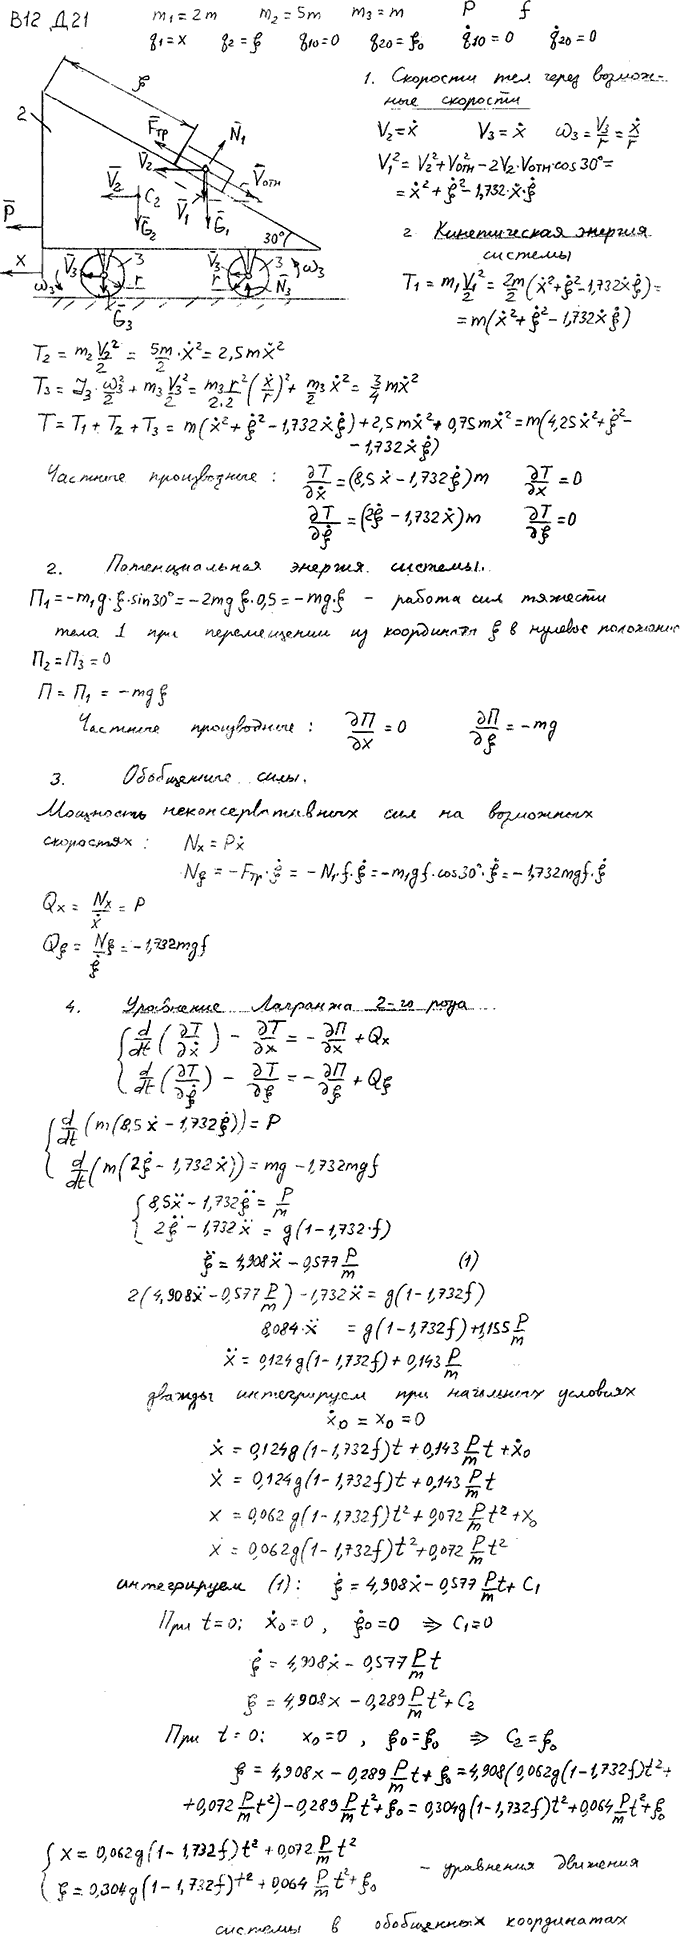 В12 Д21 m₁ = 2m m₂ = 5m m₃ = m P f
q₁ = x q₂ = ξ q₁₀ = 0 q₂₀ = ξ₀ q̇₁₀ = 0 q̇₂₀ = 0
ξ
2
F̄тр
N̄₁
V̄₂
V̄отн
V̄₂
C₂
V̄₁
Ḡ₁
Ḡ₂
P̄
30°
x
V̄₃ 3
V̄₃ 3
ω₃
ω₃
r
r
N̄₃
Ḡ₃
1. Скорости тел через возмож-
ные скорости
V₂ = ẋ V₃ = ẋ ω₃ = V₃/r = ẋ/r
V₁² = V₂² + Vотн² − 2V₂·Vотн·cos30° =
= ẋ² + ξ̇² − 1,732·ẋ·ξ̇
2 Кинетическая энергия
системы
T₁ = m₁V₁²/2 = 2m/2(ẋ² + ξ̇² − 1,732ẋξ̇) =
= m(ẋ² + ξ̇² − 1,732ẋξ̇)
T₂ = m₂V₂²/2 = 5m/2·ẋ² = 2,5mẋ²
T₃ = J₃·ω₃²/2 + m₃V₃²/2 = m₃r²/2·2(ẋ/r)² + m₃/2ẋ² = 3/4mẋ²
T = T₁ + T₂ + T₃ = m(ẋ² + ξ̇² − 1,732ẋξ̇) + 2,5mẋ² + 0,75mẋ² = m(4,25ẋ² + ξ̇² −
− 1,732ẋξ̇)
Частные производные: ∂T/∂ẋ = (8,5ẋ − 1,732ξ̇)m ∂T/∂x = 0
∂T/∂ξ̇ = (2ξ̇ − 1,732ẋ)m ∂T/∂ξ = 0
2. Потенциальная энергия системы.
П₁ = −m₁g·ξ·sin30° = −2mgξ·0,5 = −mg·ξ − работа сил тяжести
тела 1 при перемещении из координаты ξ в нулевое положение
П₂ = П₃ = 0
П = П₁ = −mgξ
Частные производные: ∂П/∂x = 0 ∂П/∂ξ = −mg
3. Обобщенные силы.
Мощность неконсервативных сил на возможных
скоростях: Nx = Pẋ
Nξ = −Fтр·ξ̇ = −N₁·f·ξ̇ = −m₁gf·cos30°·ξ̇ = −1,732mgf·ξ̇
Qx = Nx/ẋ = P
Qξ = Nξ/ξ̇ = −1,732mgf
4. Уравнение Лагранжа 2-го рода
{ d/dt(∂T/∂ẋ) − ∂T/∂x = −∂П/∂x + Qx
{ d/dt(∂T/∂ξ̇) − ∂T/∂ξ = −∂П/∂ξ + Qξ
{ d/dt(m(8,5ẋ − 1,732ξ̇)) = P
{ d/dt(m(2ξ̇ − 1,732ẋ)) = mg − 1,732mgf
{ 8,5ẍ − 1,732ξ̈ = P/m
{ 2ξ̈ − 1,732ẍ = g(1−1,732·f)
ξ̈ = 4,908ẍ − 0,577P/m (1)
2(4,908ẍ − 0,577P/m) − 1,732ẍ = g(1−1,732f)
8,084·ẍ = g(1−1,732f) + 1,155P/m
ẍ = 0,124g(1−1,732f) + 0,143P/m
дважды интегрируем при начальных условиях
ẋ₀ = x₀ = 0
ẋ = 0,124g(1−1,732f)t + 0,143P/m t + ẋ₀
ẋ = 0,124g(1−1,732f)t + 0,143P/m t
x = 0,062g(1−1,732f)t² + 0,072P/m t² + x₀
x = 0,062g(1−1,732f)t² + 0,072P/m t²
интегрируем (1): ξ̇ = 4,908ẋ − 0,577P/m t + C₁
При t=0: ẋ₀ = 0, ξ̇₀ = 0 ⇒ C₁ = 0
ξ̇ = 4,908ẋ − 0,577P/m t
ξ = 4,908x − 0,289P/m t² + C₂
При t=0: x₀ = 0, ξ₀ = ξ₀ ⇒ C₂ = ξ₀
ξ = 4,908x − 0,289P/m t + ξ₀ = 4,908(0,062g(1−1,732f)t² +
+ 0,072P/m t²) − 0,289P/m t² + ξ₀ = 0,304g(1−1,732f)t² + 0,064P/m t² + ξ₀
{ x = 0,062g(1−1,732f)t² + 0,072P/m t²
{ ξ = 0,304g(1−1,732f)t² + 0,064P/m t² + ξ₀ − уравнения движения
системы в обобщенных координатах